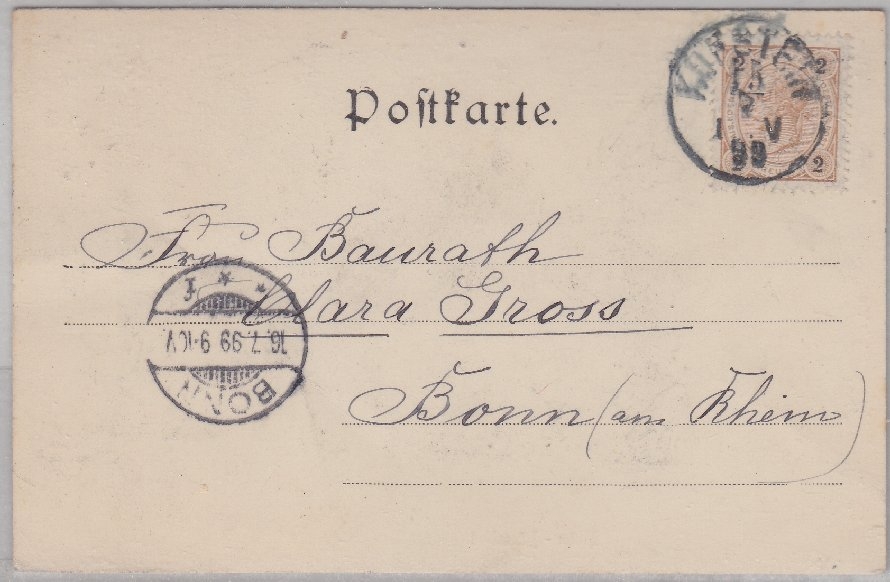 Postkarte.
KUFSTEIN
15
7
V
99
2
2
Frau Baurath
Clara Gross
Bonn (am Rhein)
BONN
16.7.99 9-10V
* * f